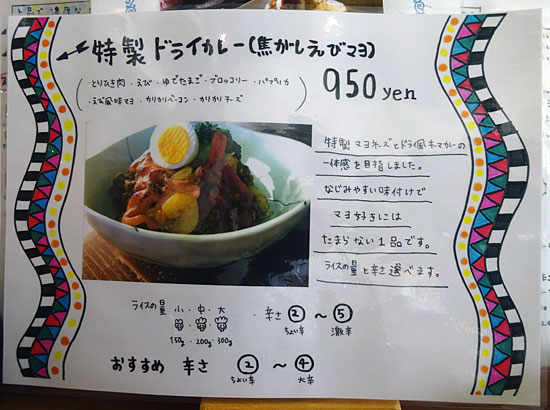 特製 ドライカレー(焦がしえびマヨ)
950yen
(・とりひき肉・えび・ゆでたまご・ブロッコリー・パプリカ
・えび風味マヨ・カリカリベーコン・カリカリチーズ)
特製マヨネーズとドライ風キーマカレーの
一体感を目指しました。
なじみやすい味付けで
マヨ好きには
たまらない1品です。
ライスの量と辛さ選べます。
ライスの量 小・中・大
150g・200g・300g
・辛さ ② ~ ⑤
ちょい辛 激辛
おすすめ 辛さ ② ~ ④
ちょい辛 大辛